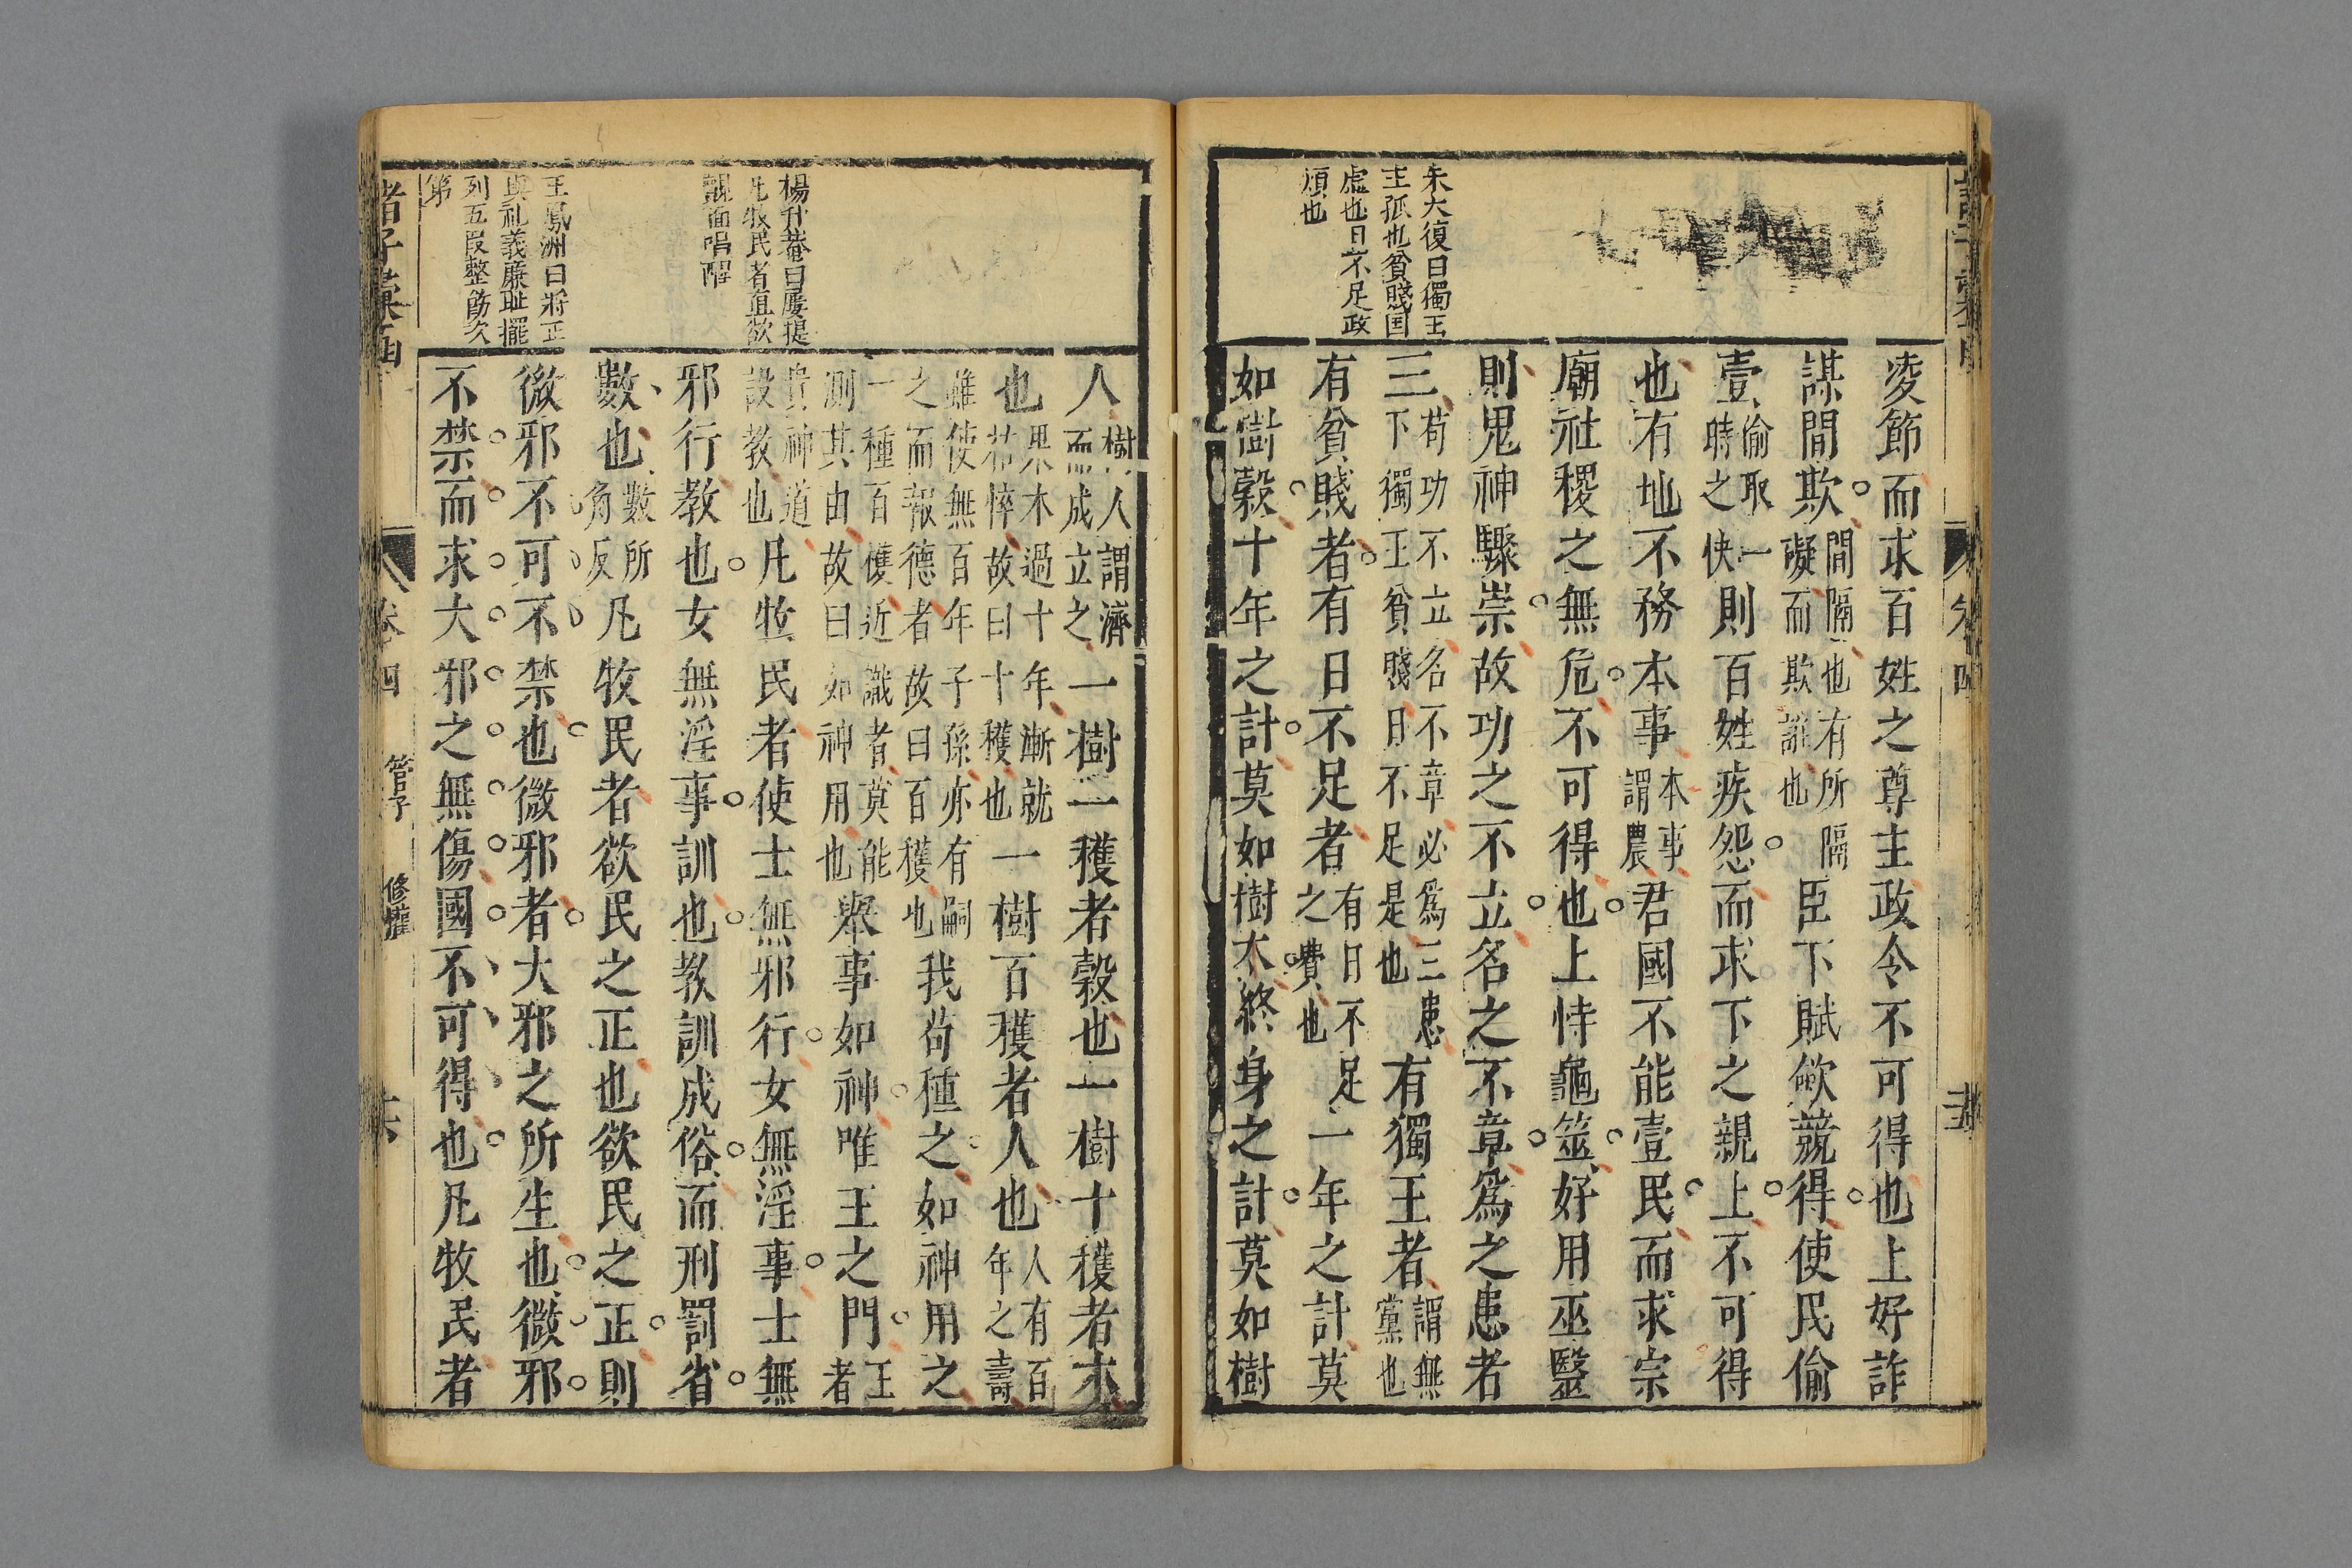 朱大復曰獨王
主孤也貧賤国
虛也日不足政
煩也
凌節而求百姓之尊主政令不可得也上好詐
謀閒欺閒隔也有所隔礙而欺誑也臣下賦斂競得使民偷
壹偷取一時之快則百姓疾怨而求下之親上不可得
也有地不務本事本事謂農君國不能壹民而求宗
廟社稷之無危不可得也上恃龜筮好用巫毉
則鬼神驟祟故功之不立名之不章為之患者
三苟功不立名不章必為三患下獨王貧賤日不足是也有獨王者謂無黨也
有貧賤者有日不足者有日不足之費也一年之計莫
如樹穀十年之計莫如樹木終身之計莫如樹
楊升菴曰屢提
凡牧民者直欲
覿面唱醒
王鳳洲曰將正
與礼義廉耻擺
列五段整飭次
第
人樹人謂濟而成立之一樹一穫者穀也一樹十穫者木
也果木過十年漸就枯悴故曰十穫也一樹百穫者人也人有百年之壽
雖使無百年子孫亦有嗣之而報德者故曰百穫也我苟種之如神用之
一種百穫近識者莫能測其由故曰如神用也舉事如神唯王之門王者
貴神道設教也凡牧民者使士無邪行女無淫事士無
邪行教也女無淫事訓也教訓成俗而刑罰省
數也數所角反凡牧民者欲民之正也欲民之正則
微邪不可不禁也微邪者大邪之所生也微邪
不禁而求大邪之無傷國不可得也凡牧民者
卷四
管子
修權